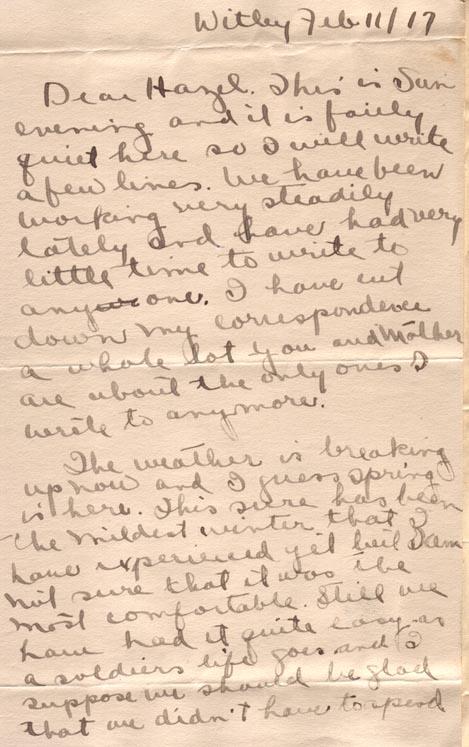 Witley Feb 11/17
Dear Hazel. This is Sun
evening and it is fairly
quiet here so I will write
a few lines. We have been
working very steadily
lately and have had very
little time to write to
any one. I have cut
down my correspondence
a whole lot you and Mother
are about the only ones I
write to anymore.
The weather is breaking
up now and I guess spring
is here. This sure has been
the mildest winter that I
have experienced yet but I am
not sure that it was the
most comfortable. Still we
have had it quite easy as
a soldiers life goes and I
suppose we should be glad
that we didn't have to spend